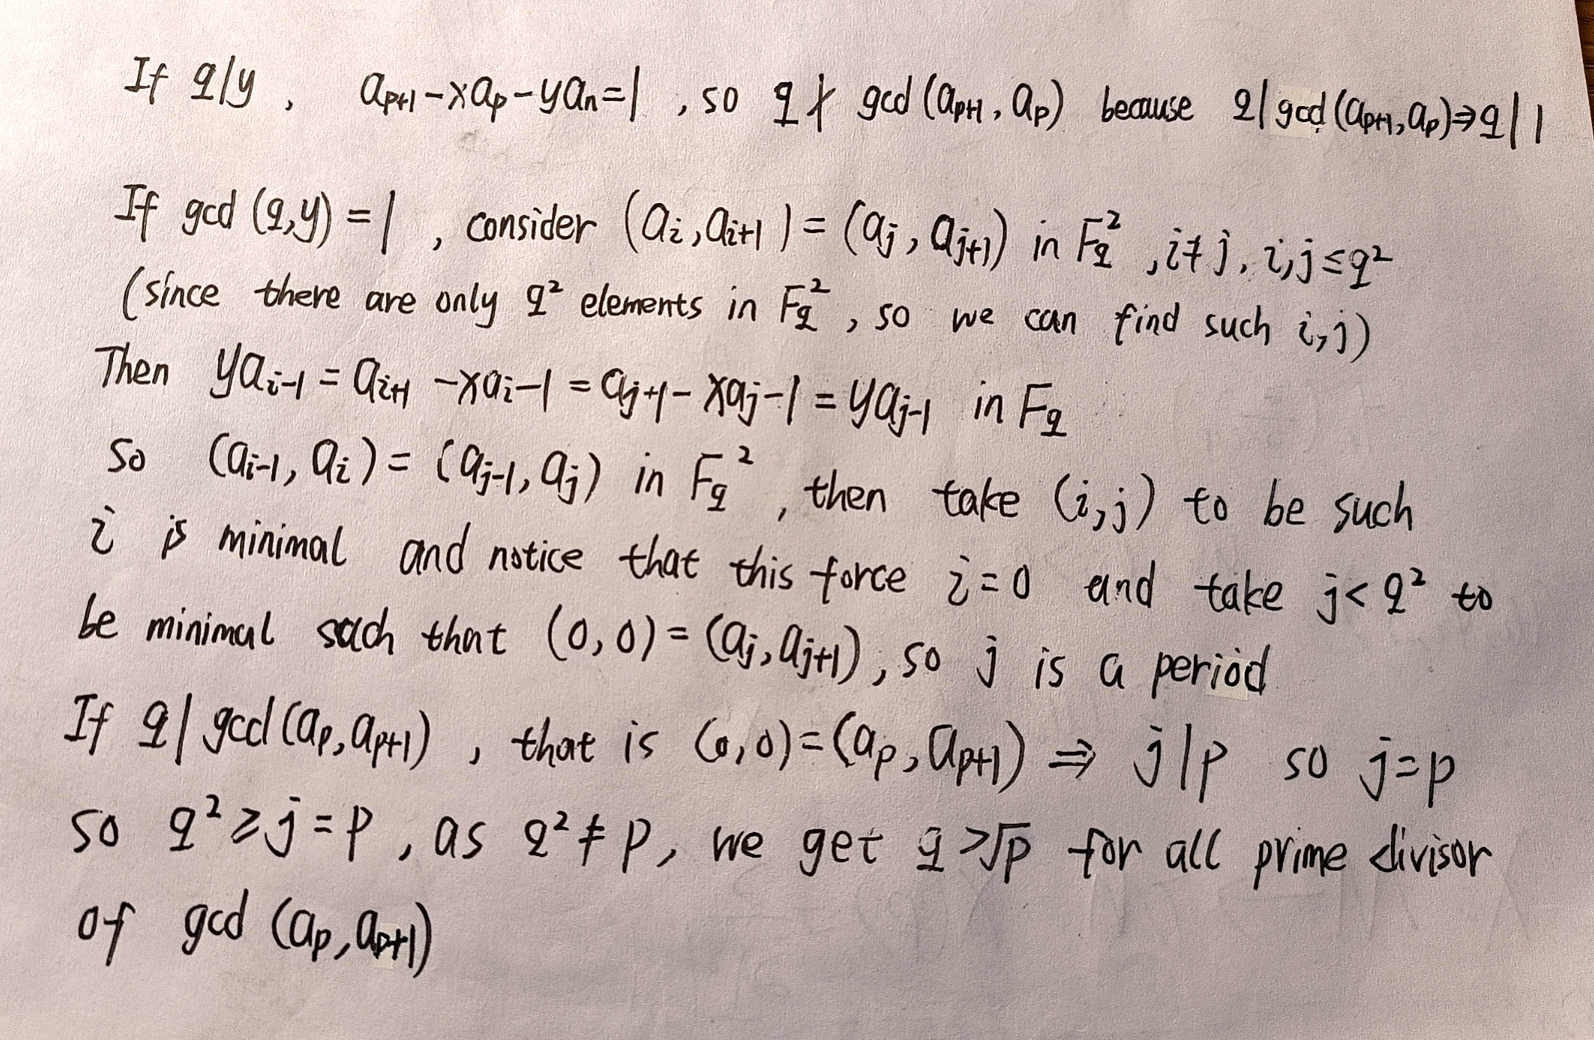 If q|y, a_{p+1}-xa_p-ya_n=1, so q∤gcd(a_{p+1},a_p) because q|gcd(a_{p+1},a_p)⇒q|1
If gcd(q,y)=1, consider (a_i,a_{i+1})=(a_j,a_{j+1}) in F_q^2, i≠j, i,j≤q^2
(since there are only q^2 elements in F_q^2, so we can find such i,j)
Then ya_{i-1}=a_{i+1}-xa_i-1=a_{j+1}-xa_j-1=ya_{j-1} in F_q
So (a_{i-1},a_i)=(a_{j-1},a_j) in F_q^2, then take (i,j) to be such
i is minimal and notice that this force i=0 and take j<q^2 to
be minimal such that (0,0)=(a_j,a_{j+1}), so j is a period
If q|gcd(a_p,a_{p+1}), that is (0,0)=(a_p,a_{p+1})⇒j|p so j=p
so q^2≥j=p, as q^2≠p, we get q>√p for all prime divisor
of gcd(a_p,a_{p+1})